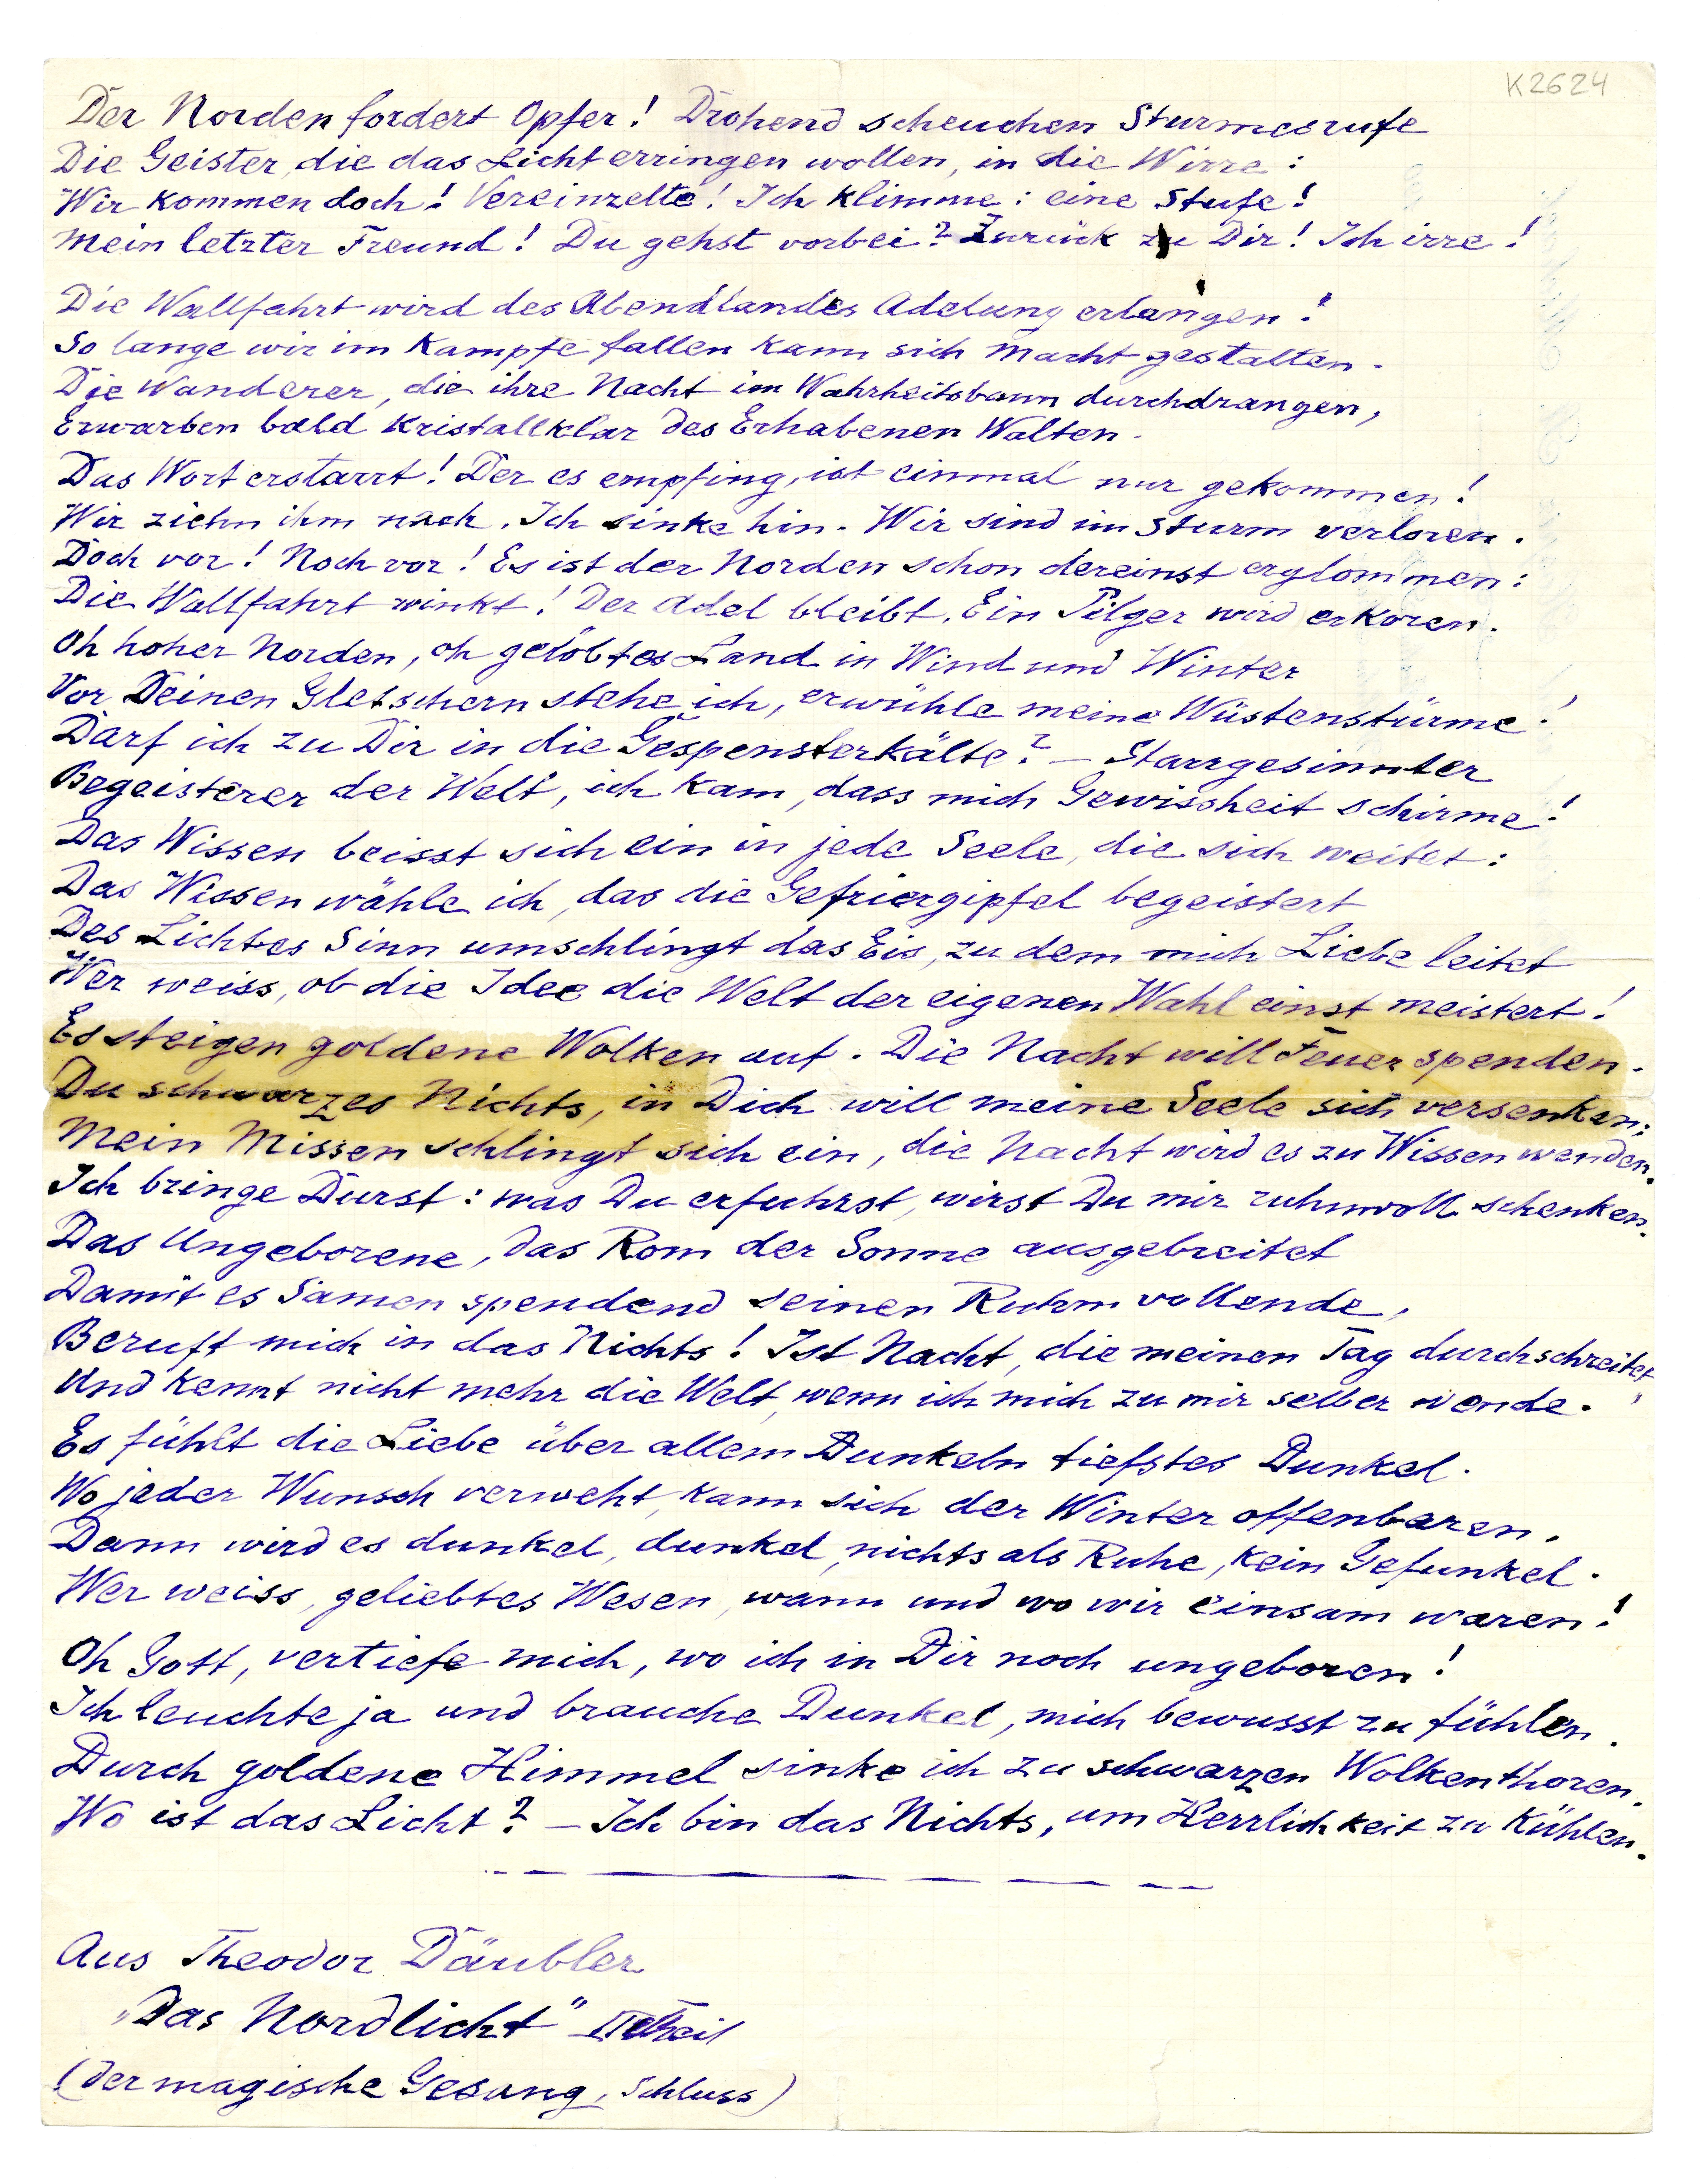 K2624
Der Norden fordert Opfer! Drohend scheuchen Sturmesrufe
Die Geister, die das Licht erringen wollen, in die Wirre:
Wir kommen doch! Vereinzelte! Ich klimme: eine Stufe!
Mein letzter Freund! Du gehst vorbei? Zurück zu Dir! Ich irre!
Die Wallfahrt wird des Abendlandes Adelung erlangen!
So lange wir im Kampfe fallen kann sich Macht gestalten.
Die Wanderer, die ihre Nacht im Wahrheitsbann durchdrangen,
Erwarben bald kristallklar des Erhabenen Walten.
Das Wort erstarrt! Der es empfing, ist einmal nur gekommen!
Wir ziehn ihm nach. Ich sinke hin. Wir sind im Sturm verloren.
Doch vor! Noch vor! Es ist der Norden schon dereinst erglommen:
Die Wallfahrt winkt! Der Adel bleibt. Ein Pilger wird erkoren.
Oh hoher Norden, oh gelöbtes Land in Wind und Winter
Vor Deinen Gletschern stehe ich, erwühle meine Wüstenstürme!
Darf ich zu Dir in die Gespensterkälte? – Starrgesinnter
Begeisterer der Welt, ich kam, dass mich Gewissheit schirme!
Das Wissen beisst sich ein in jede Seele, die sich weitet:
Das Wissen wähle ich, das die Gefriergipfel begeistert
Des Lichtes Sinn umschlingt das Eis, zu dem mich Liebe leitet
Wer weiss, ob die Idee die Welt der eigenen Wahl einst meistert!
Es steigen goldene Wolken auf. Die Nacht will Feuer spenden.
Du schwarzes Nichts, in Dich will meine Seele sich versenken;
Mein Missen schlingt sich ein, die Nacht wird es zu Wissen wenden.
Ich bringe Durst: was Du erfuhrst, wirst Du mir ruhmvoll schenken.
Das Ungeborene, das Rom der Sonne ausgebreitet
Damit es Samen spendend seinen Ruhm vollende,
Beruft mich in das Nichts! Ist Nacht, die meinen Tag durchschreitet,
Und kennt nicht mehr die Welt, wenn ich mich zu mir selber wende.
Es fühlt die Liebe über allem Dunkeln tiefstes Dunkel.
Wo jeder Wunsch verweht, kann sich der Winter offenbaren,
Dann wird es dunkel, dunkel, nichts als Ruhe, kein Gefunkel.
Wer weiss, geliebtes Wesen, wann und wo wir einsam waren!
Oh Gott, vertiefe mich, wo ich in Dir noch ungeboren!
Ich leuchte ja und brauche Dunkel, mich bewusst zu fühlen.
Durch goldene Himmel sinke ich zu schwarzen Wolkenthoren.
Wo ist das Licht? – Ich bin das Nichts, um Herrlichkeit zu kühlen.
Aus Theodor Däubler
„Das Nordlicht" II Theil
(Der magische Gesang, Schluss)